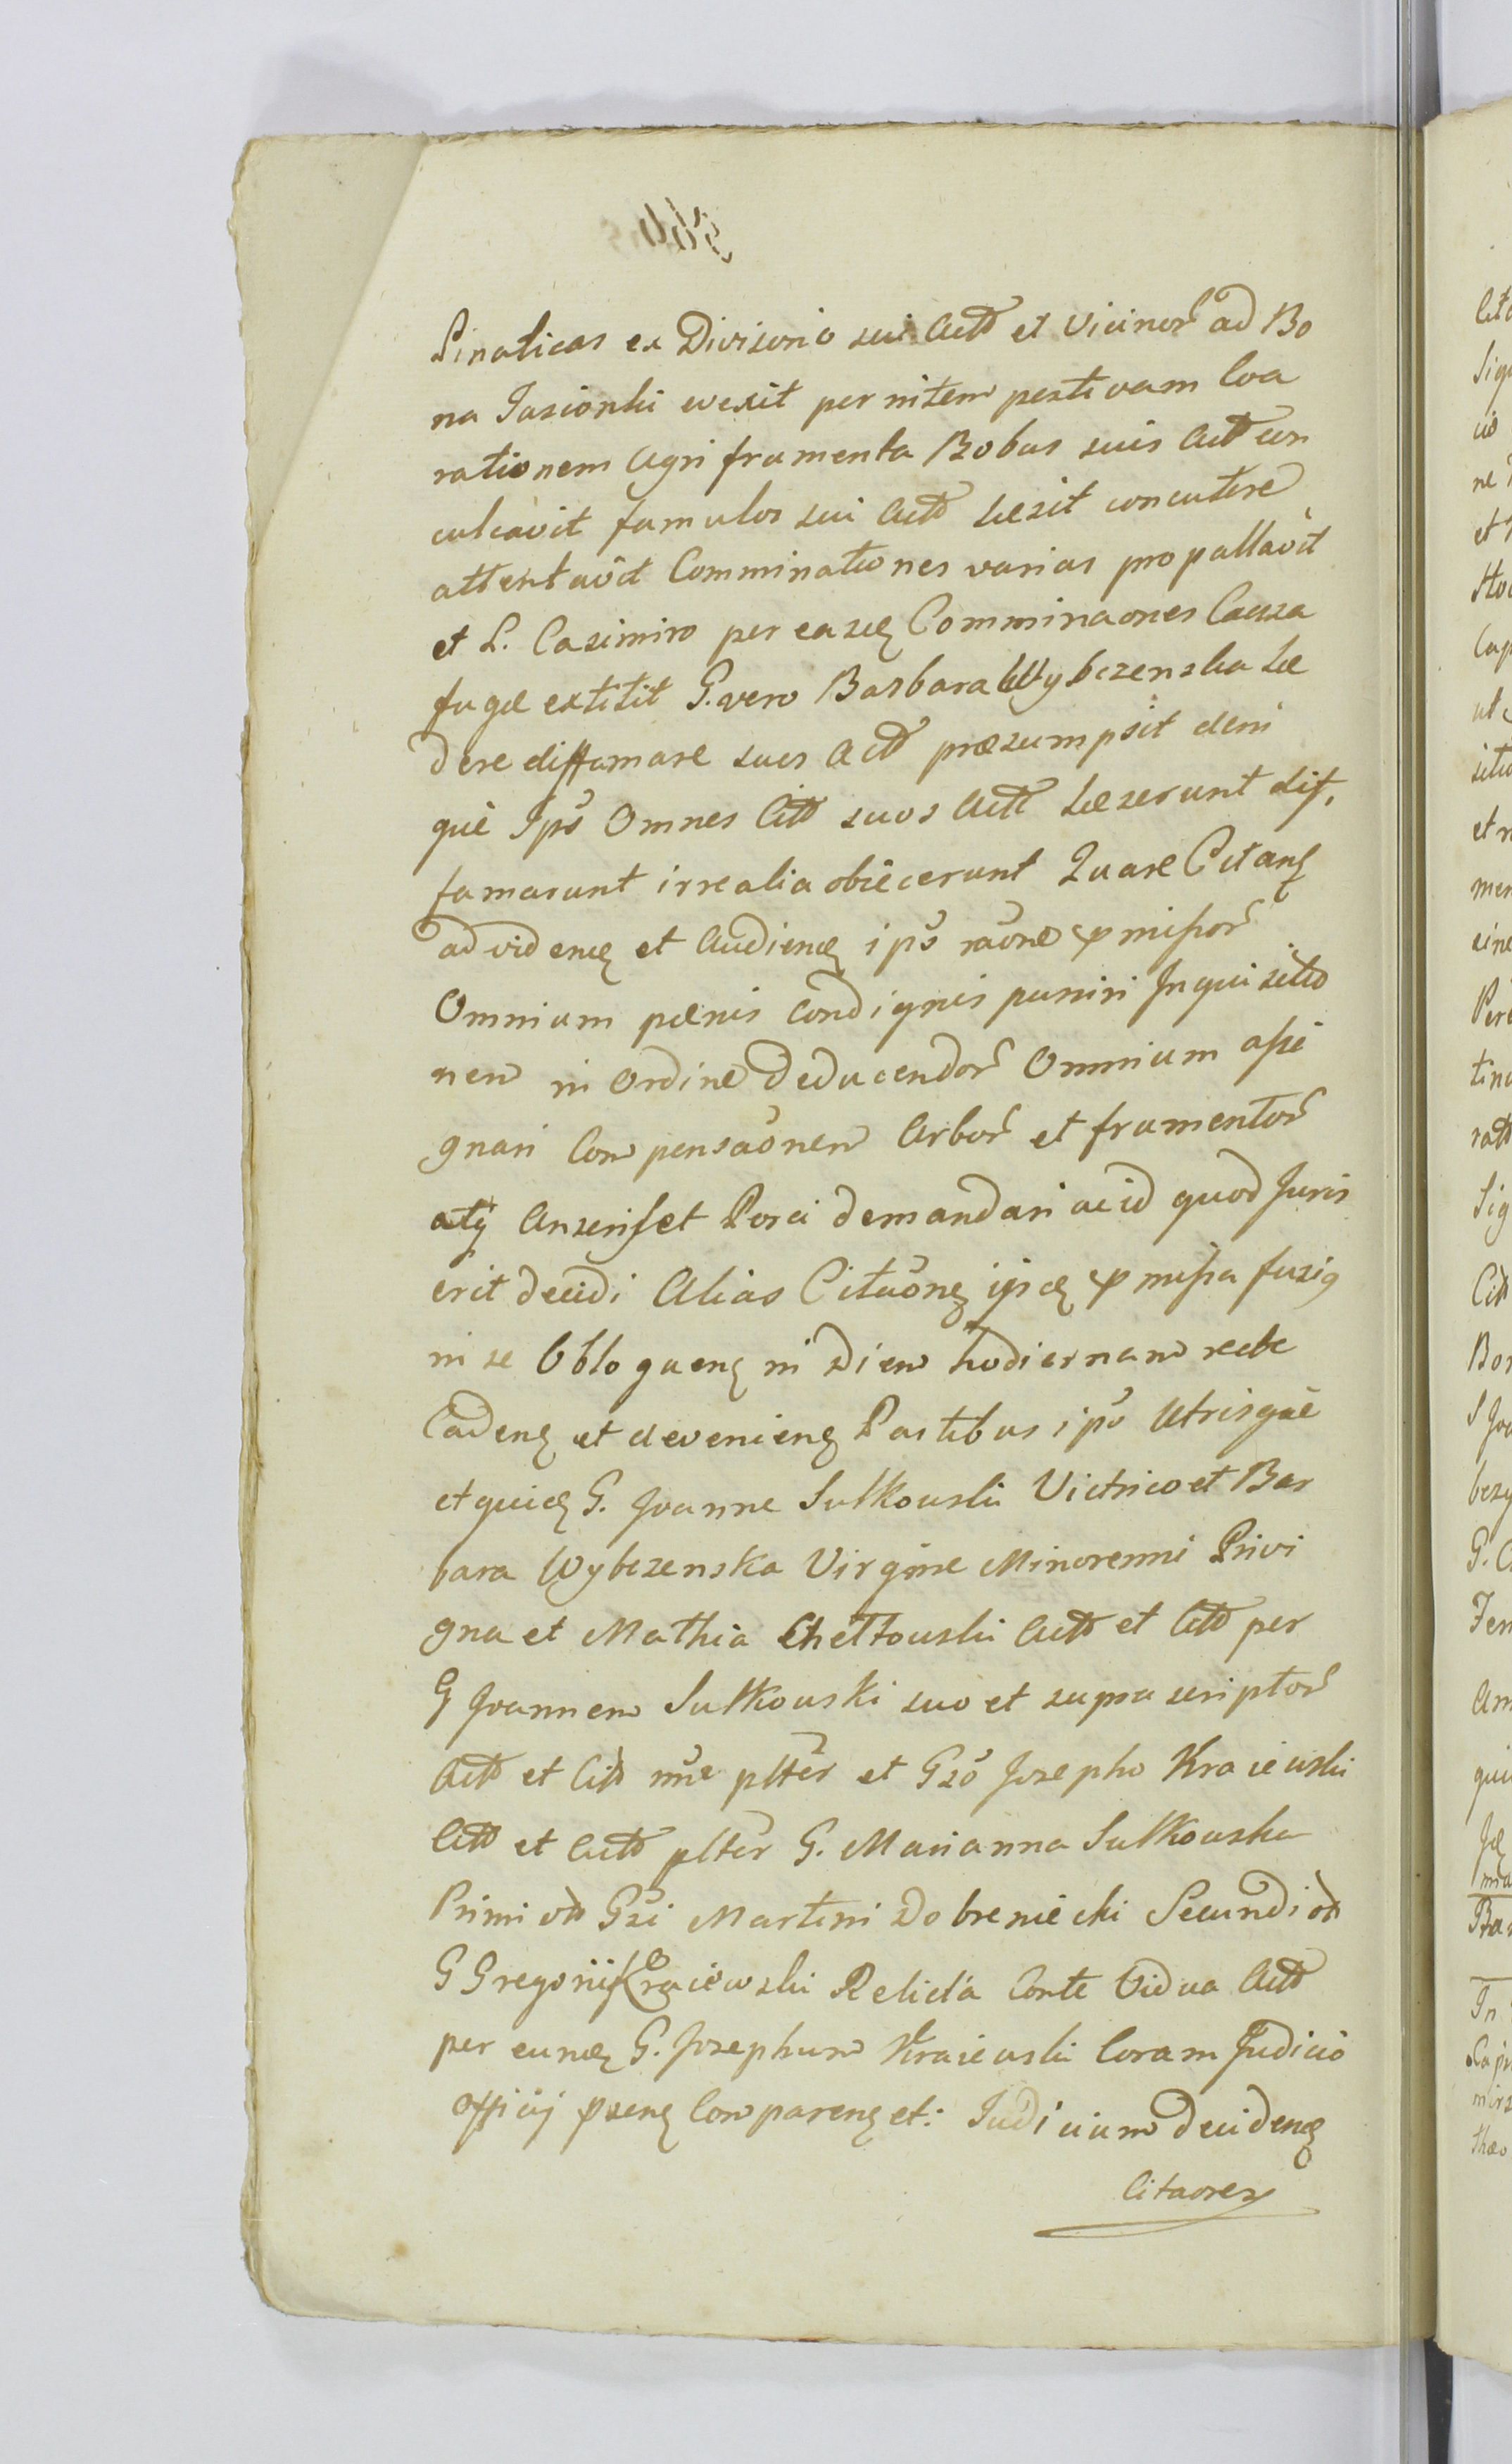 Linaticas ex Divisorio sui Actt et Vicinor ad Bo
na Jasionki evexit per intem pestivam Coa
rationem Agri frumenta Bobus suis Actt con
culcavit famulos sui Actt Læsit concutere
attentavit Comminationes varias propallavit
et L. Casimiro per easdę Comminaones Causa
fugæ extitit G. vero Barbara Wybczenska Læ
dere diffamare suos Actt præsumpsit deni
què Ipõ Omnes Citt suos Actt Læserunt dif,
famarunt irrealia obiecerunt Quare Citanς
ad videnς et Audienς ipõ raõne præmissor
Omnium pænis condignis puniri Inquisitio
nem in Ordine deducendor Omnium assi
gnari Compensaõnem Arbor et frumentor
atq Anseris et Porci demandari ac id quod Juris
erit decidi Alias Citaõnς ipsς præmissa fusiq
in se Obloquenς in Diem hodiernam recte
Cadenς et devenienς Partibus ipõ Utrisquè
et quidς G. Joanne Sułkowski Victrico et Bar
bara Wybczenska Virgine Minorenni Privi
gna et Mathia Chełtowski Actt et Citt per
G Joannem Sułkowski suo et supra scriptor
Actt et Citt nñe plttèr et Gsõ Josepho Kraiewski
Citt et Actt plttèr G. Marianna Sułkowska
Primi vtt Gsi Martini Dobreniecki Secundi vtt
G Gregorii Kraiewski Relicta Conte Vidua Actt
per eundς G. Josephum Kraiewski Coram Judicio
officij præsenς Comparenς et: Judicium decidenς
Citaones